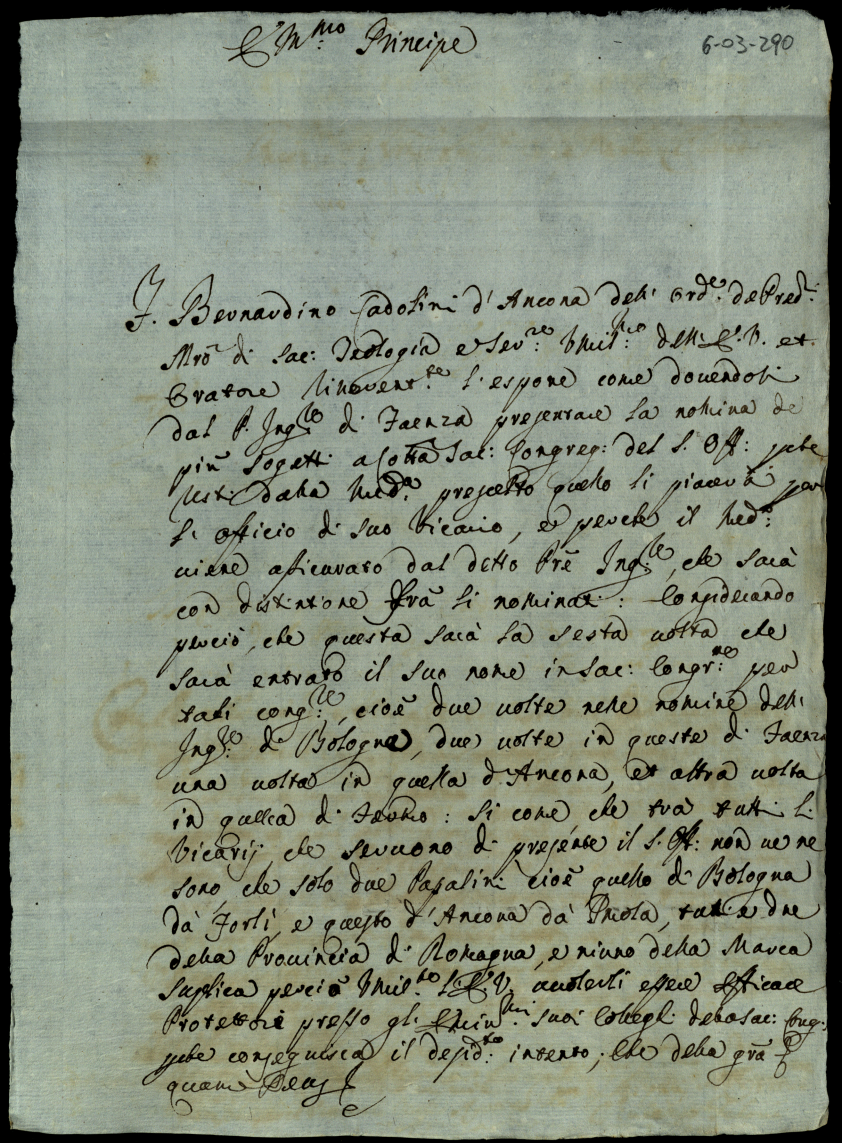 E.mo Principe
6-03-290
F. Bernardino Cadolini d'Ancona dell' Ord.e de Pred.ri
Mro di Sac: Teologia e Ser.re Umil.mo dell' E.V. et
Oratore River.te l'espone come dovendosi
dal P. Inq.re di Faenza presentare la nomina de
più Sogetti a cotta Sac: Congreg: del S. Off:
dalla Med.a quello li piacerà per
l' officio di suo Vicario, e perche il Med.o
viene assicurato dal detto Prē Inq.re, che sarà
con distintione frà li nominati: Considerando
perciò, che questa sarà la sesta volta che
sarà entrato il suo nome in Sac: Congr.ne per
tali cong.re, cioè due volte nelle nomine dell'
Inq.re di Bologna, due volte in queste di Faenza
una volta in quella d'Ancona, et altra volta
in quella di Fermo: si come che tra tutti li
Vicarij, che servono di presente il S. Off: non ve ne
sono che solo due Papalini cioè quello di Bologna
dà Forlì, e questo d'Ancona dà Imola, tutti e due
della Provincia di Romagna, e niuno della Marca
Suplica perciò Umil.te l'E.V. volerli essere efficace
Protettore presso gl' Emin.mi suoi Colleghi della Sac: Cong:
conseguisca il desid.to intento; Che della grā
quam Deus